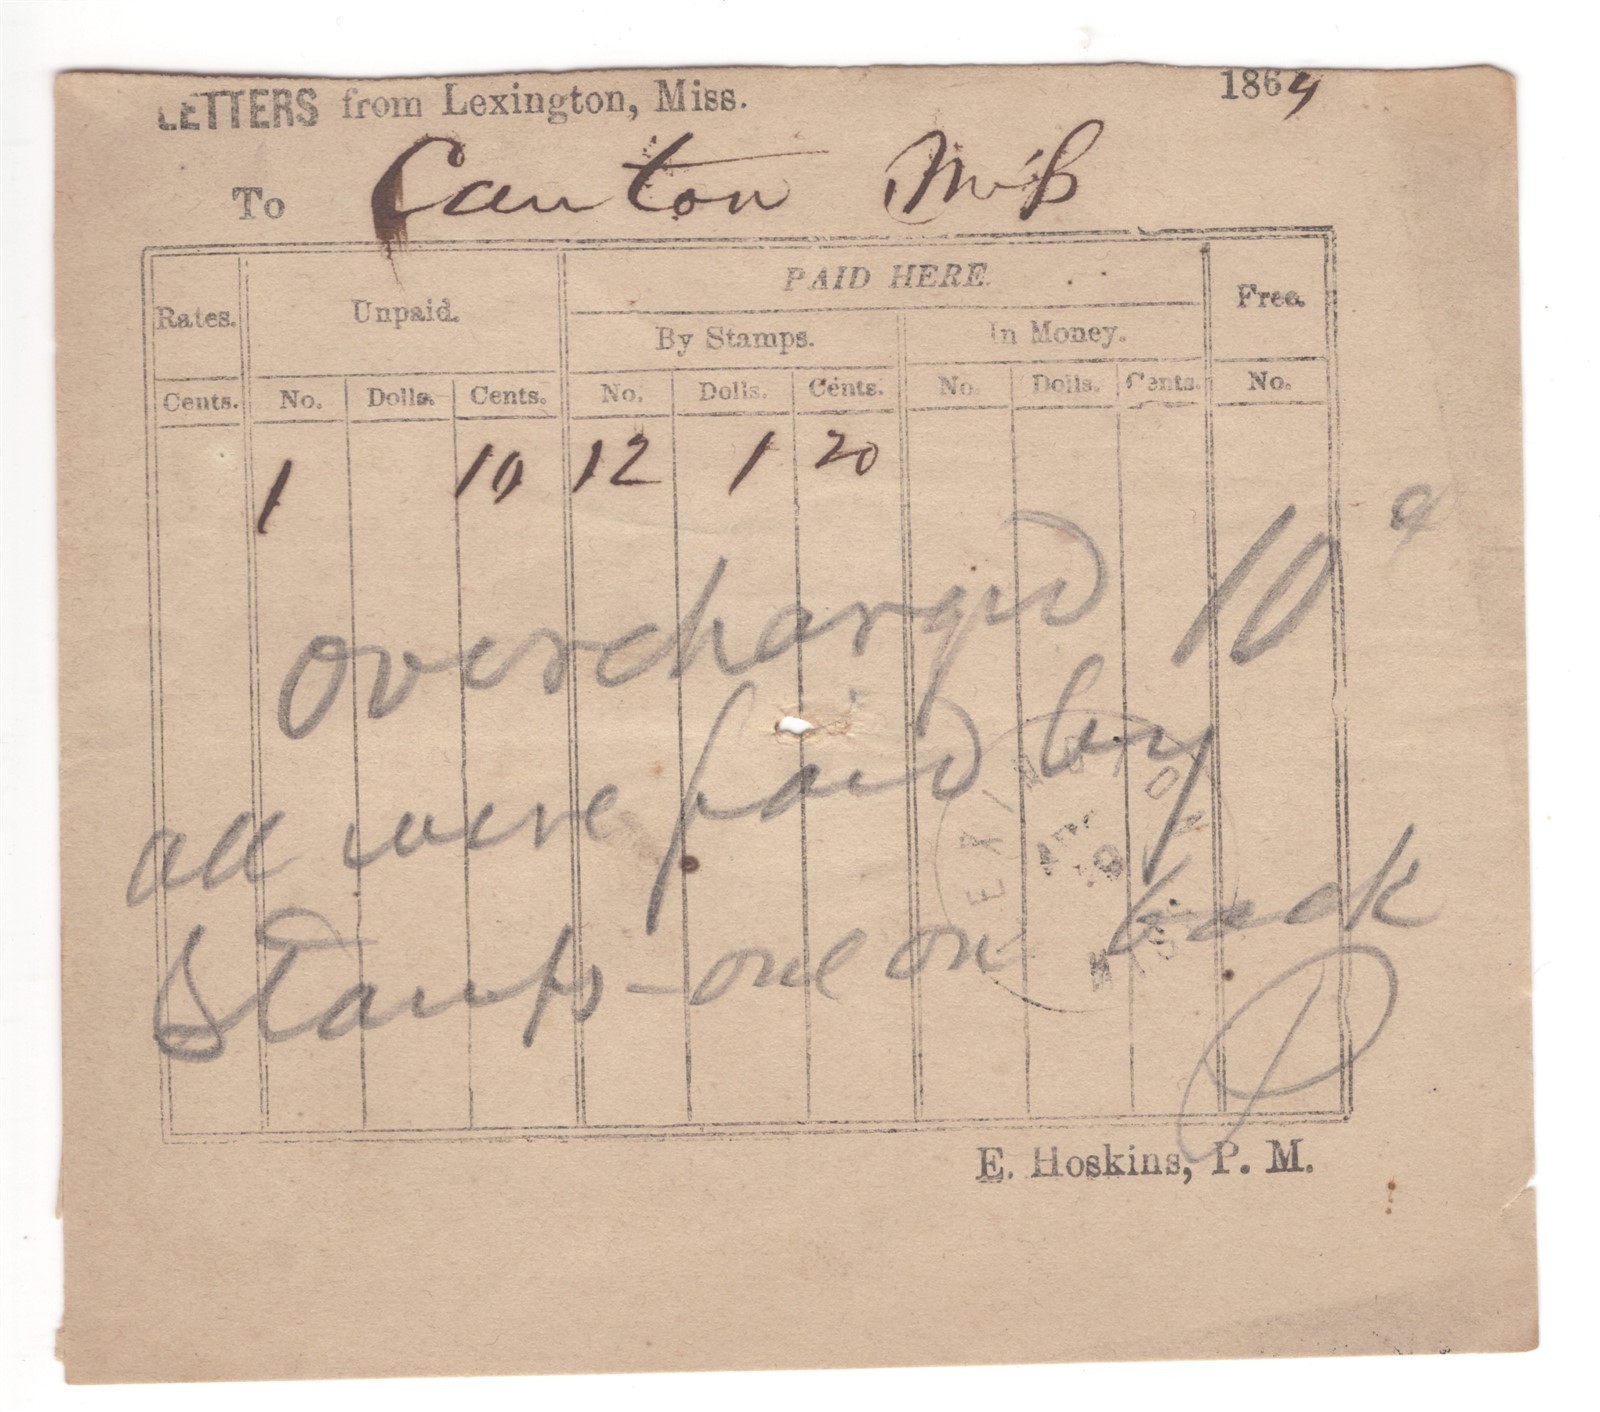 LETTERS from Lexington, Miss. 1864
To Canton Miss
Rates. Unpaid. PAID HERE Free.
By Stamps. In Money.
Cents. No. Dolls. Cents. No. Dolls. Cents. No. Dolls. Cents. No.
1 10 12 1 20
Overcharged 10 c
all were paid by
Stamps - one on back
E. Hoskins, P. M.